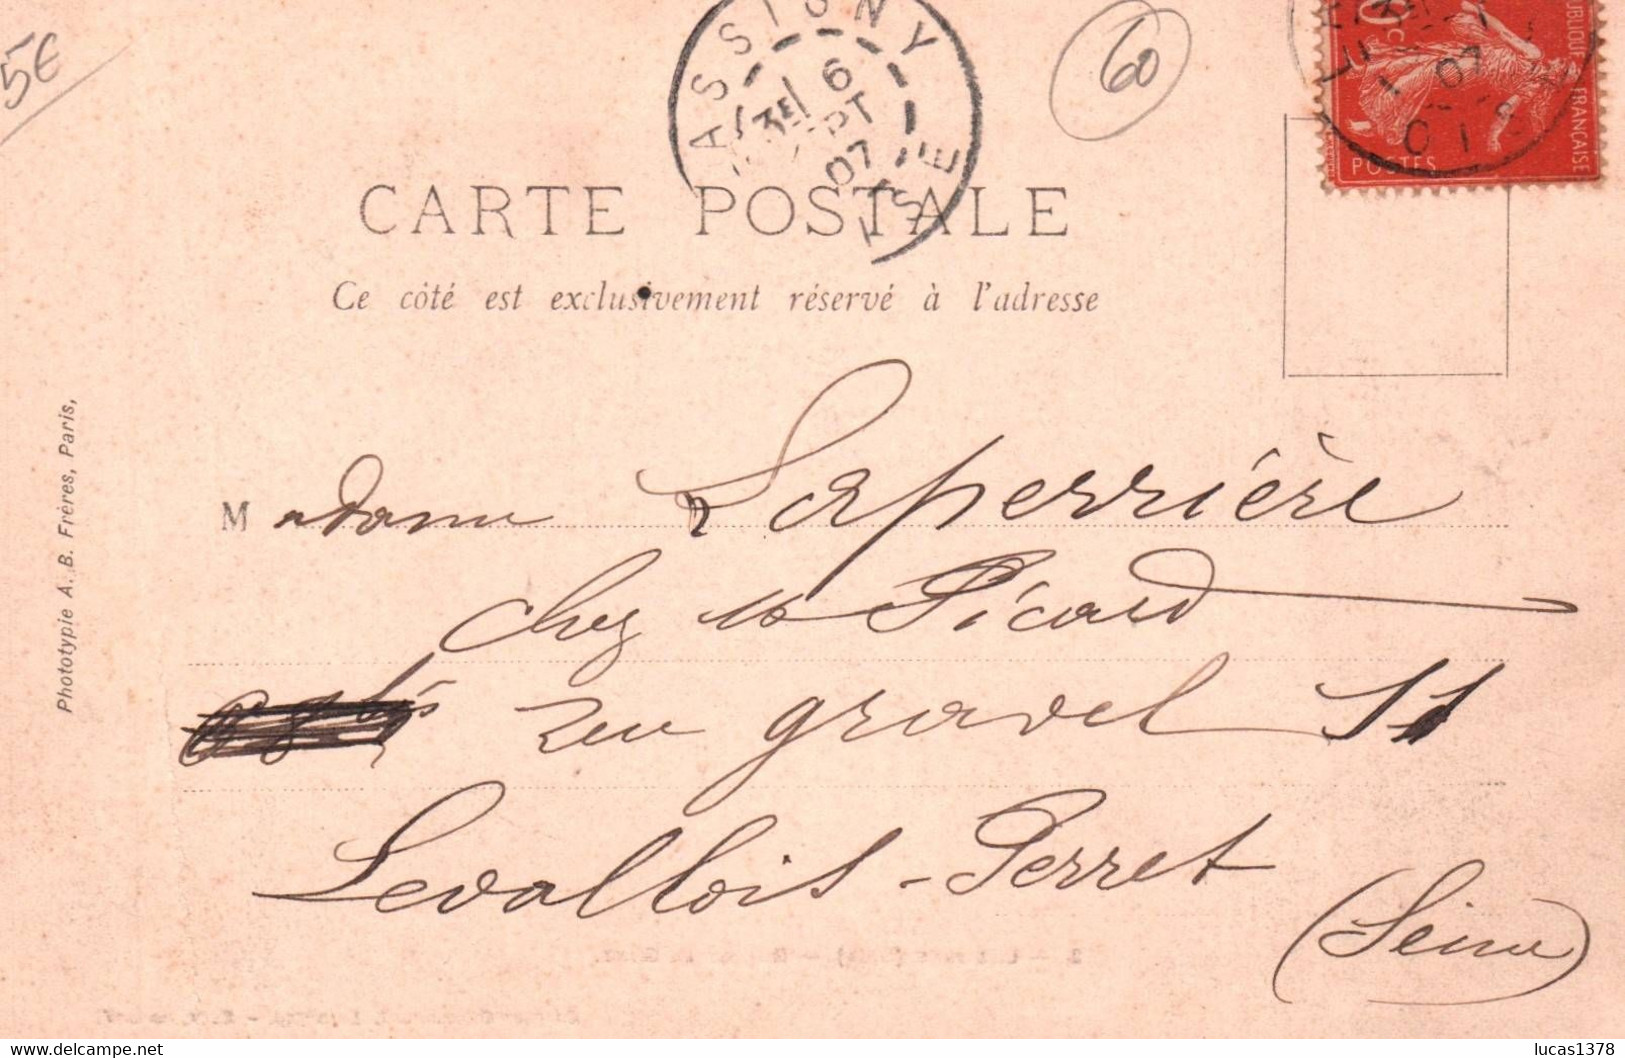 5€
60
ASSIGNY
OISE
3E
6
SEPT
07
3E
07
OISE
10c
RÉPUBLIQUE FRANÇAISE
POSTES
CARTE POSTALE
Ce côté est exclusivement réservé à l'adresse
Phototypie A. B. Frères, Paris,
Madame Laperrière
chez M Picard
rue gravel 11
Levallois-Perret
(Seine)
lucas1378